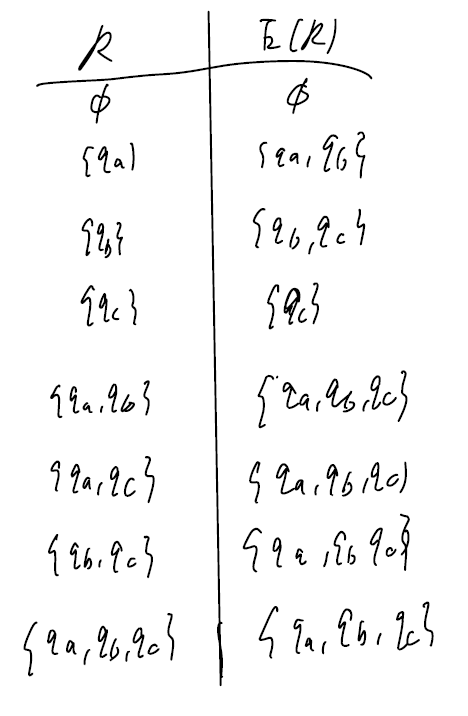 R E(R)
ϕ ϕ
{qa} {qa, qb}
{qb} {qb, qc}
{qc} {qc}
{qa, qb} {qa, qb, qc}
{qa, qc} {qa, qb, qc}
{qb, qc} {qa, qb qc}
{qa, qb, qc} {qa, qb, qc}